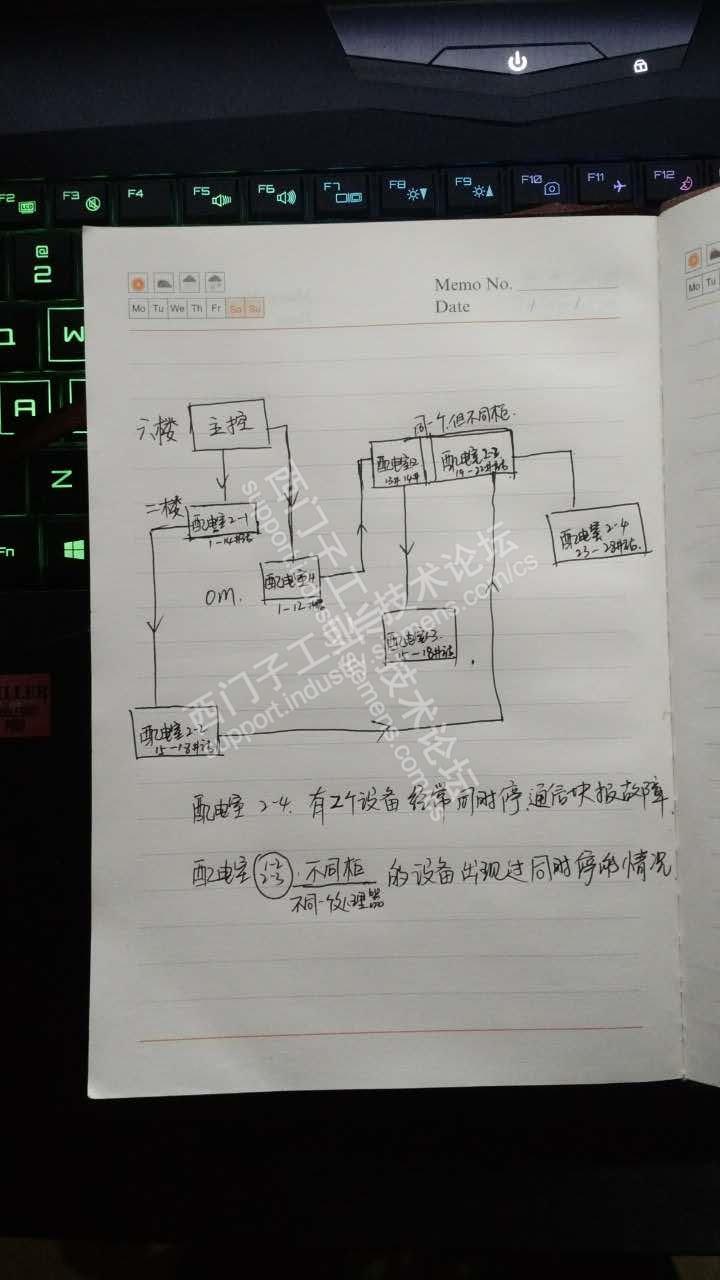 F2 LCD
F3
F4
F5
F6
F7
F8
F9
F10
F11
F12
@
2
W
A
Z
Fn
Memo No.
Mo Tu We Th Fr Sa Su
Date / /
Mo Tu
六楼
主控
同一个,但不同柜.
二楼
配电室2-1
1-14#站
配电室2-3
19-22#站
配电室2-4
23-28#站.
0m.
1-12
15-18#站
配电室2-2
15-18#站
配电室 2-4. 有2个设备 经常同时停.通信快报故障.
配电室 1-2 2-3 . 不同柜 的设备出现过同时停的情况
不同一处理器
西门子工业技术论坛
support.industry.siemens.com/cs
西门子工业技术论坛
support.industry.siemens.com/cs